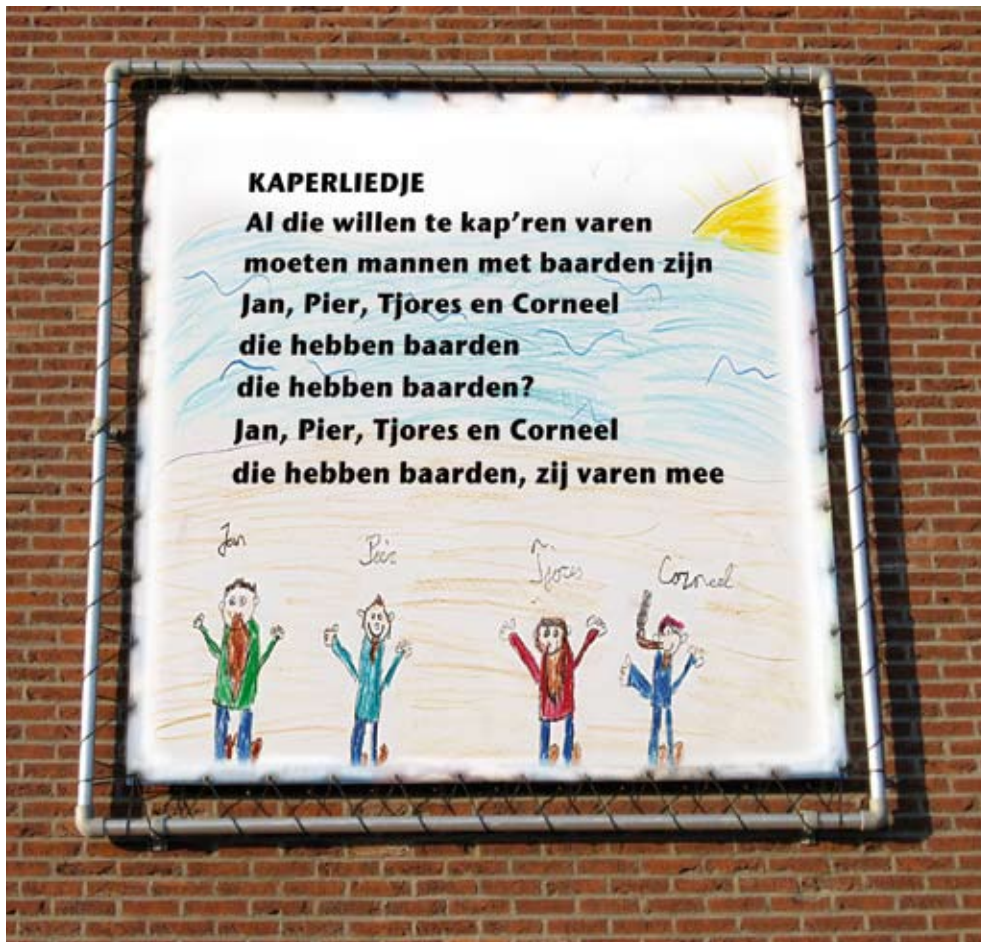 KAPERLIEDJE
Al die willen te kap’ren varen
moeten mannen met baarden zijn
Jan, Pier, Tjores en Corneel
die hebben baarden
die hebben baarden?
Jan, Pier, Tjores en Corneel
die hebben baarden, zij varen mee
Jan Pier Tjores Corneel